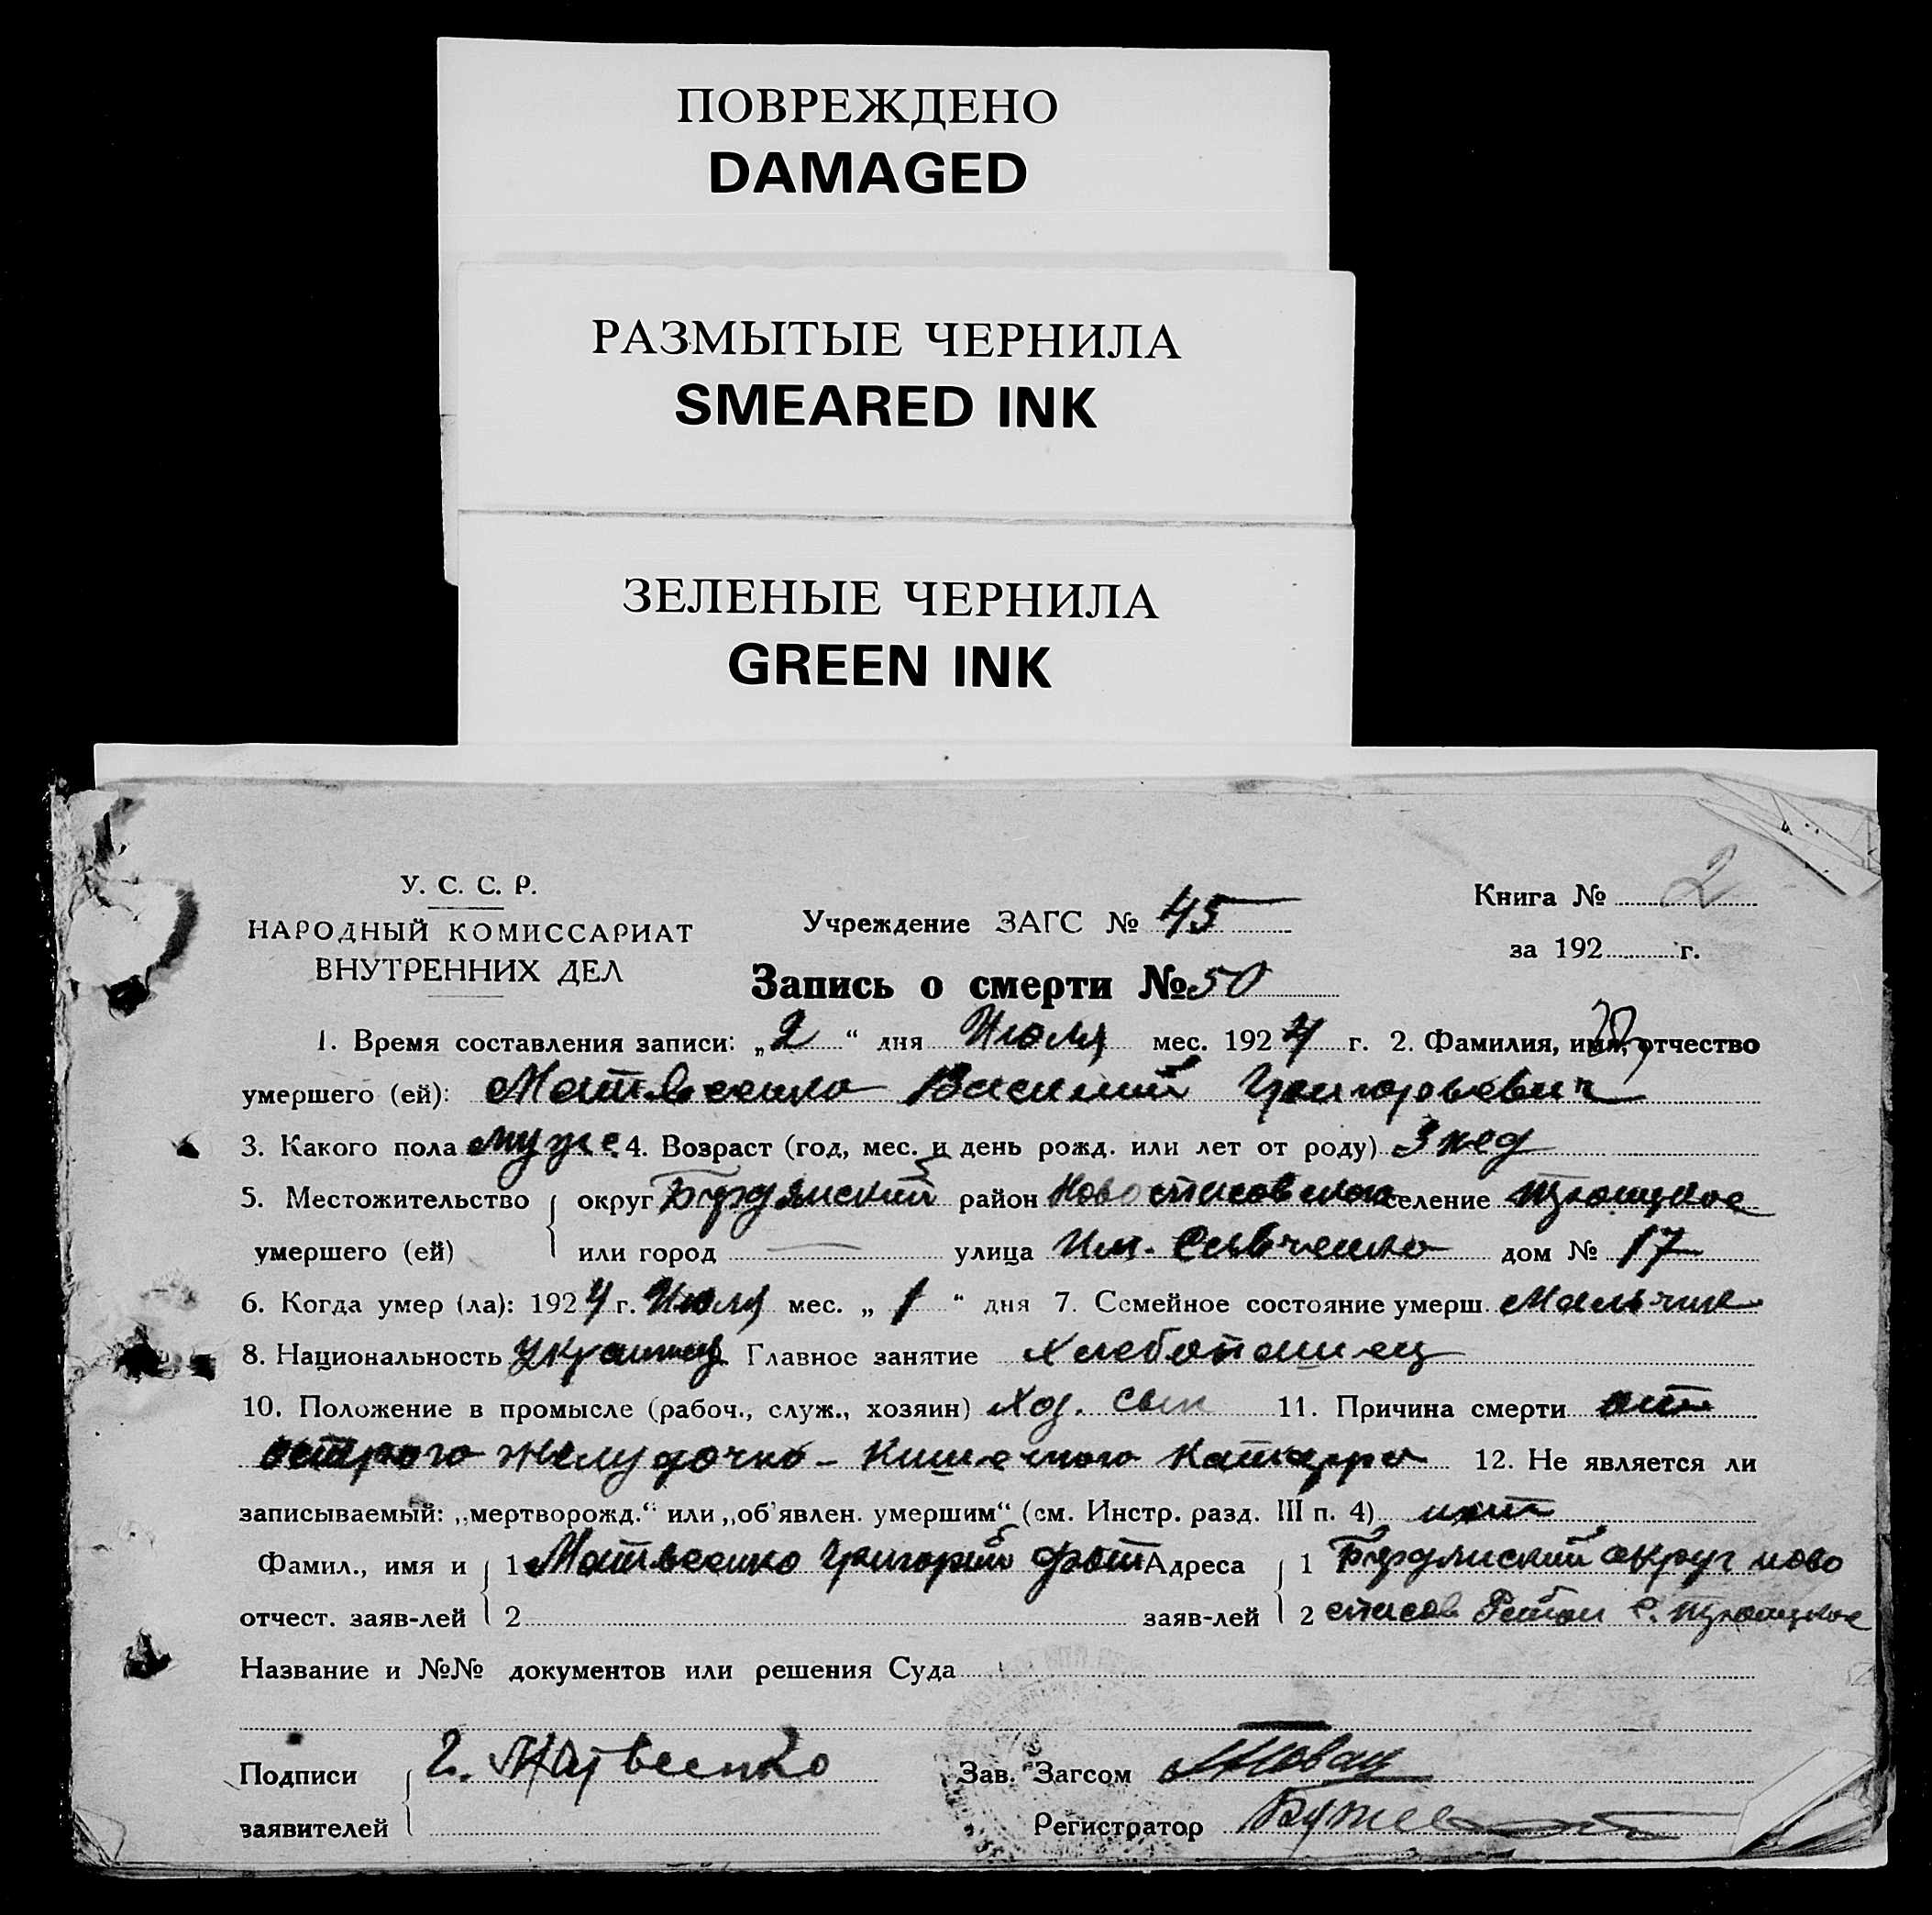 ПОВРЕЖДЕНО
DAMAGED
РАЗМЫТЫЕ ЧЕРНИЛА
SMEARED INK
ЗЕЛЕНЫЕ ЧЕРНИЛА
GREEN INK
У. С. С. Р.
НАРОДНЫЙ КОМИССАРИАТ
ВНУТРЕННИХ ДЕЛ
Учреждение ЗАГС № 45
Книга № 2
за 192 г.
Запись о смерти № 50
1. Время составления записи: „2“ дня Июля мес. 1924 г. 2. Фамилия, имя, отчество
умершего (ей): Матвеенко Василий Григорьевич
3. Какого пола муже. 4. Возраст (год, мес. и день рожд. или лет от роду) 3 нед
5. Местожительство округ Бердянский район Новоспасовский селение Троицкое
умершего (ей) или город — улица Им. дом № 17
6. Когда умер (ла): 1924 г. Июля мес. „1“ дня 7. Семейное состояние умерш. Мальчик
8. Национальность украинец Главное занятие Хлебопашец
10. Положение в промысле (рабоч., служ., хозяин) Хоз. сын 11. Причина смерти от
острого желудочно-кишечного катарра 12. Не является ли
записываемый: „мертворожд.“ или „об'явлен. умершим“ (см. Инстр. разд. III п. 4) нет
Фамил., имя и 1 Матвеенко Григорий Адреса 1 Бердянский округ ново
отчест. заяв-лей 2 заяв-лей 2 спасов Район с. Троицкое
Название и №№ документов или решения Суда
Подписи Г. Матвеенко Зав. Загсом
заявителей Регистратор